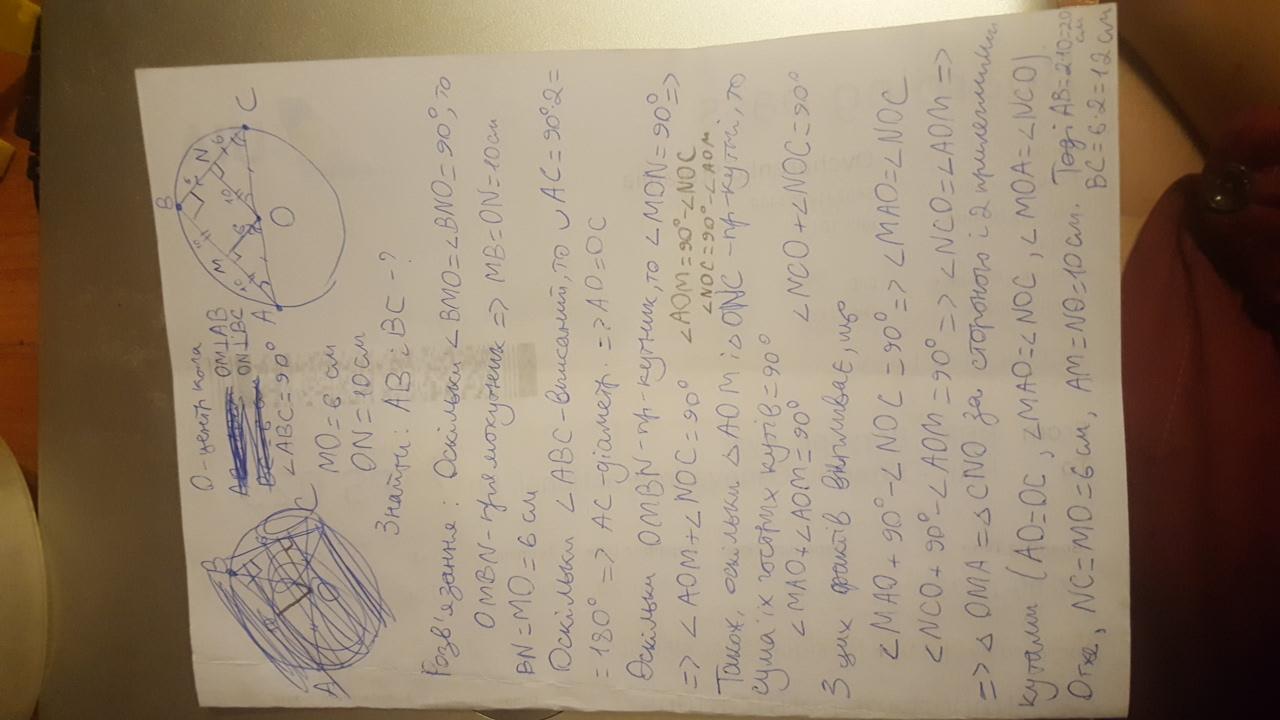 О-центр кола
OM⊥AB
ON⊥BC
∠ABC=90°
MO=6 см
ON=10 см
Знайти: AB, BC-?
B
A
C
O
M
N
B
A
C
O
Розв'язання: Оскільки ∠BMO=∠BNO=90°, то
OMBN-прямокутник => MB=ON=10см
BN=MO=6 см
Оскільки ∠ABC-вписаний, то ◡AC=90°·2=
=180° => AC-діаметр. => AO=OC
Оскільки OMBN-пр-кутник, то ∠MON=90° =>
=> ∠AOM+∠NOC=90°
∠AOM=90°-∠NOC
∠NOC=90°-∠AOM
Також, оскільки △AOM і △ONC -пр-кутні, то
сума їх гострих кутів=90°
∠MAO+∠AOM=90° ∠NCO+∠NOC=90°
З цих фактів випливає, що
∠MAO+90°-∠NOC=90° => ∠MAO=∠NOC
∠NCO+90°-∠AOM=90° => ∠NCO=∠AOM =>
=> △OMA=△CNO за стороною і 2 прилеглими
кутами (AO=OC, ∠MAO=∠NOC, ∠MOA=∠NCO)
Отже, NC=MO=6см, AM=NO=10см. Тоді AB=2·10=20
см
BC=6·2=12см